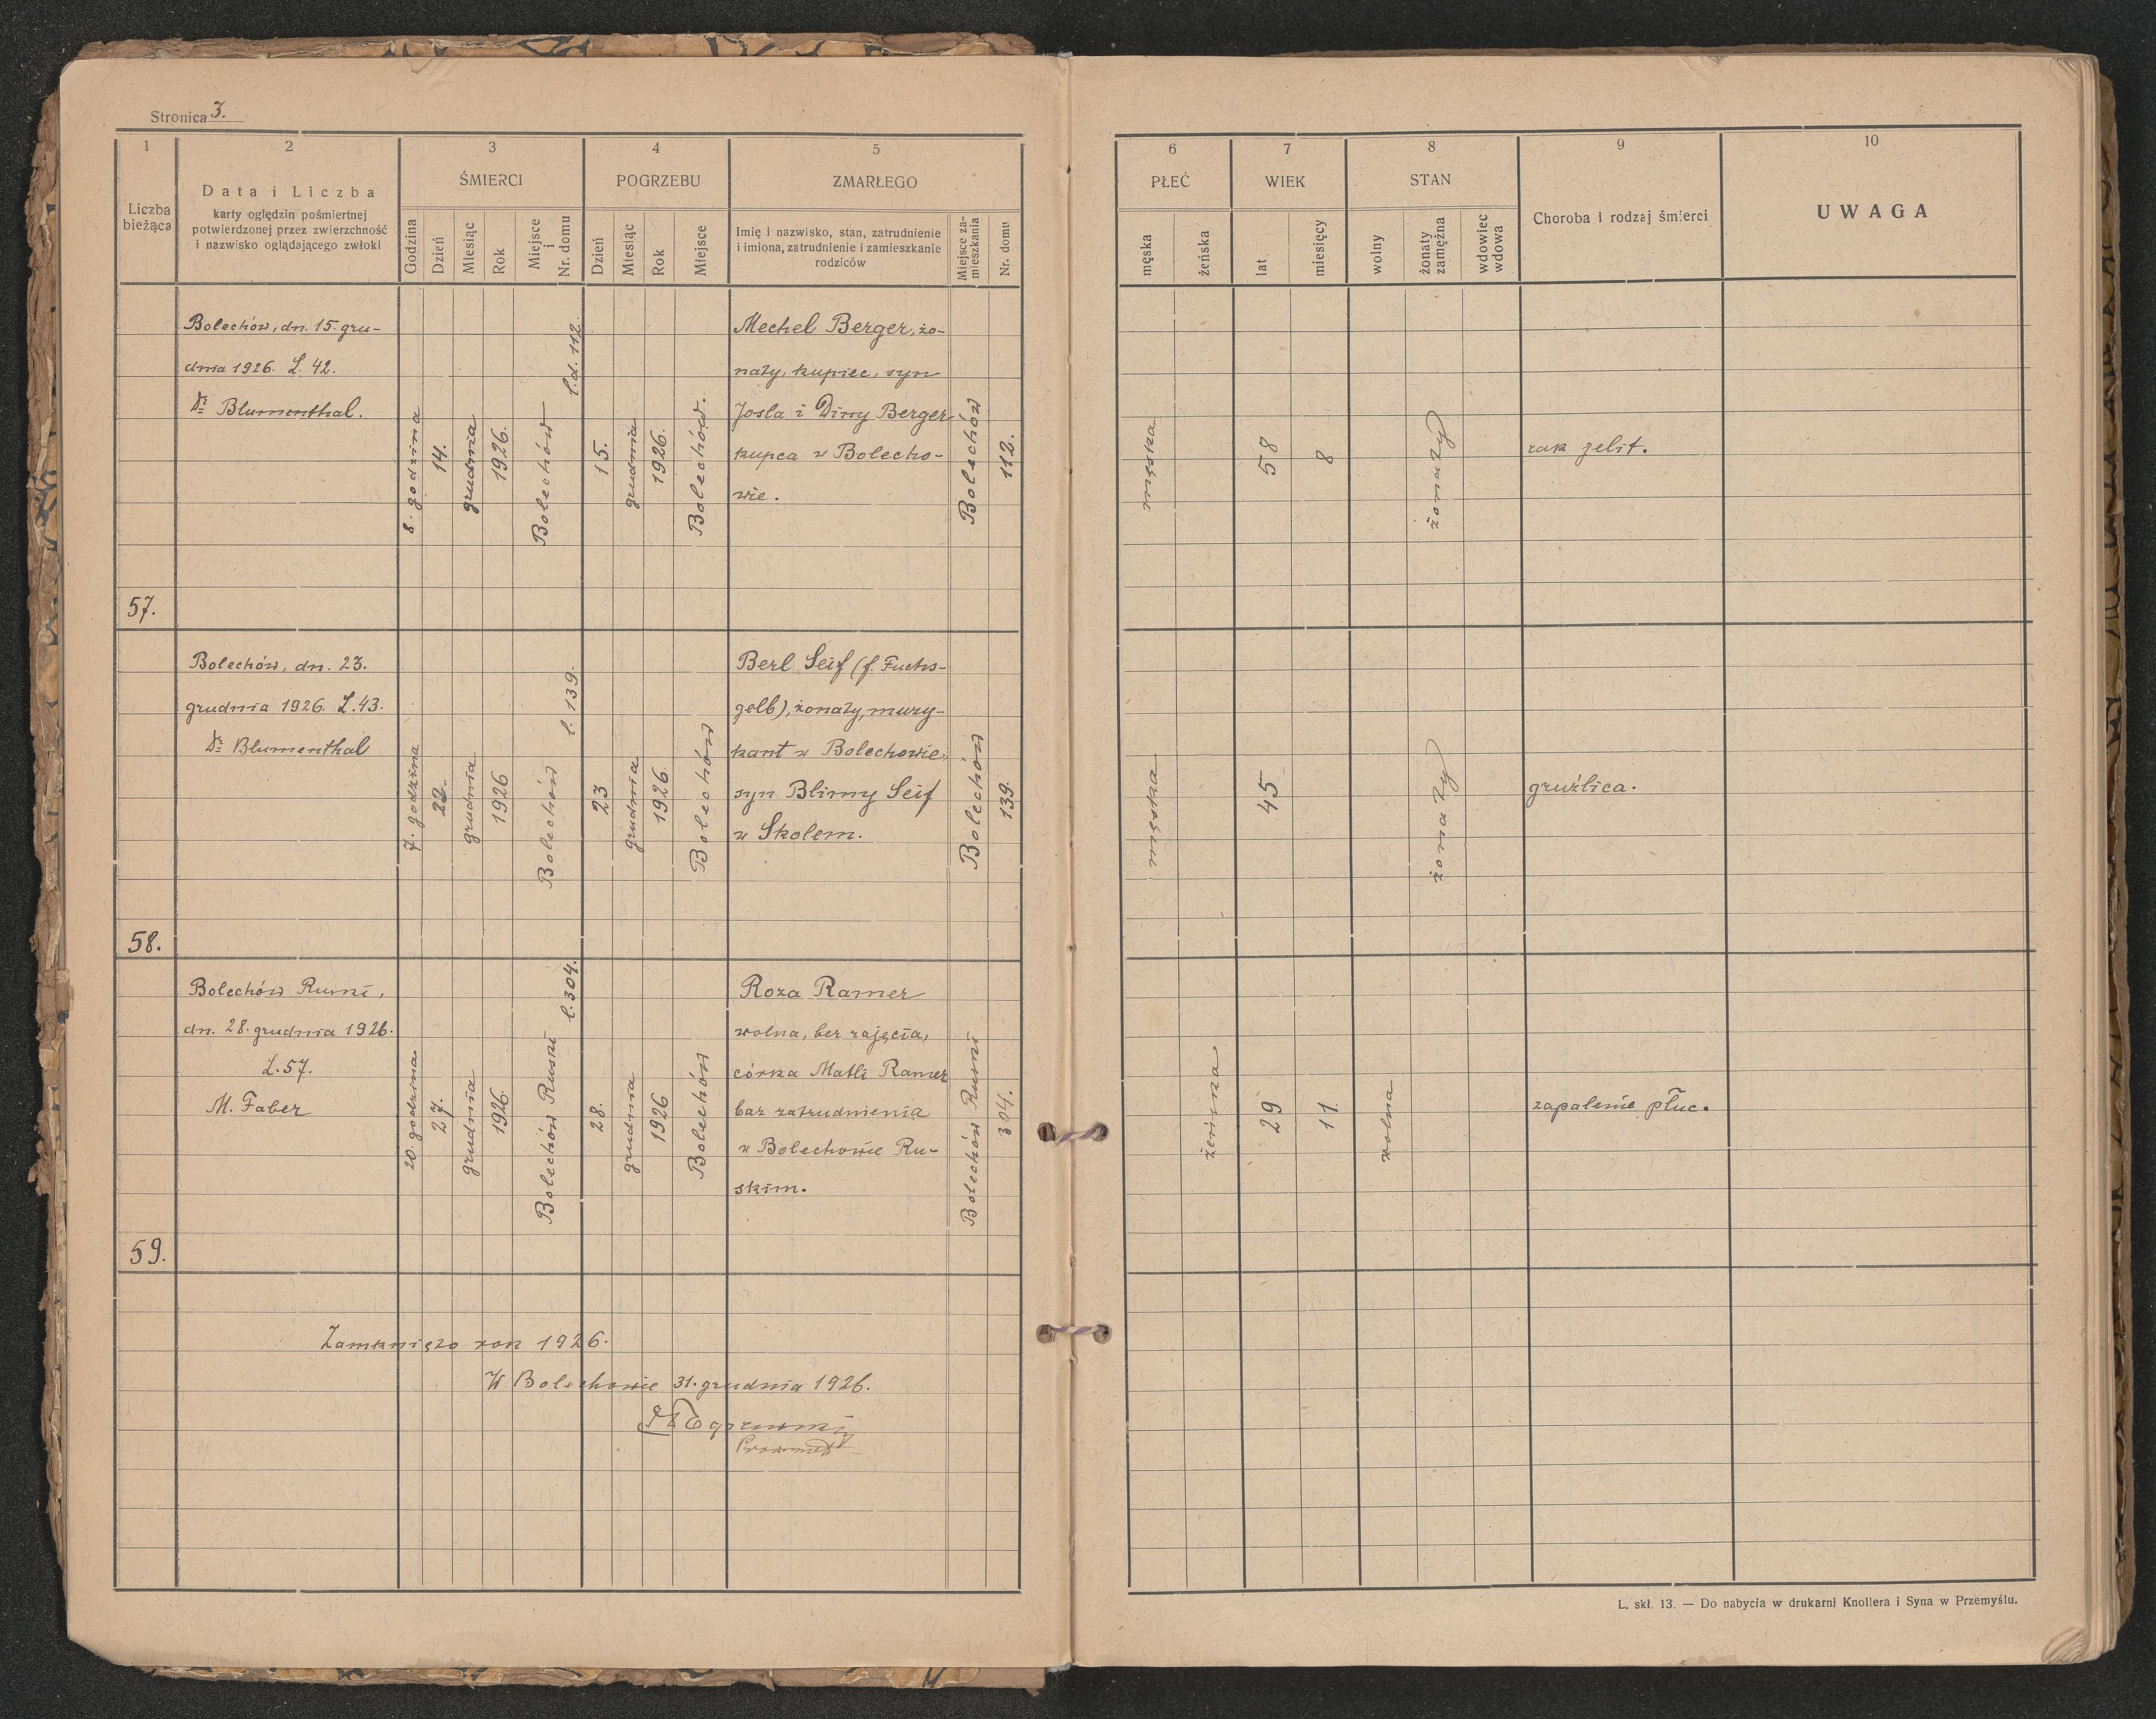 Stronica 3.
1
2
3
4
5
6
7
8
9
10
Liczba
bieżąca
Data i Liczba
karty oględzin pośmiertnej
potwierdzonej przez zwierzchność
i nazwisko oglądającego zwłoki
ŚMIERCI
Godzina
Dzień
Miesiąc
Rok
Miejsce
i
Nr. domu
POGRZEBU
Dzień
Miesiąc
Rok
Miejsce
ZMARŁEGO
Imię i nazwisko, stan, zatrudnienie
i imiona, zatrudnienie i zamieszkanie
rodziców
Miejsce za-
mieszkania
Nr. domu
PŁEĆ
męska
żeńska
WIEK
lat
miesięcy
STAN
wolny
żonaty
zamężna
wdowiec
wdowa
Choroba i rodzaj śmierci
UWAGA
57.
Bolechów, dn. 15. gru-
dnia 1926. L. 42.
Dr Blumenthal.
8. godzina
14.
grudnia
1926.
Bolechów
l.d. 112.
15.
grudnia
1926.
Bolechów.
Mechel Berger, żo-
naty, kupiec, syn
Josla i Diny Berger
kupca w Bolecho-
wie.
Bolechów
112.
męska
58
8
żonaty
rak żelit.
58.
Bolechów, dn. 23.
grudnia 1926. L. 43.
Dr Blumenthal
7. godzina
22.
grudnia
1926
Bolechów
l. 139.
23
grudnia
1926.
Bolechów
Berl Seif (f. Fuchs-
gelb), żonaty, muzy-
kant w Bolechowie,
syn Blimy Seif
w Skolem.
Bolechów
139.
męska
45
żonaty
gruźlica.
59.
Bolechów Ruski,
dn. 28. grudnia 1926.
L. 57.
M. Faber
20. godzina
27.
grudnia
1926.
Bolechów Ruski
l. 304.
28.
grudnia
1926
Bolechów
Roza Ramer
wolna, bez zajęcia,
córka Matli Ramer
bez zatrudnienia
w Bolechowie Ru-
skim.
Bolechów Ruski
304.
żeńska
29
11
wolna
zapalenie płuc.
Zamknięto rok 1926.
W Bolechowie 31. grudnia 1926.
L. skł. 13. — Do nabycia w drukarni Knollera i Syna w Przemyślu.